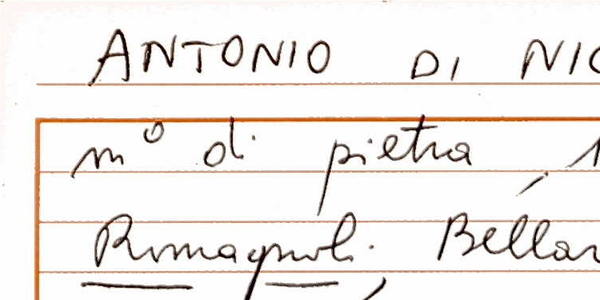 ANTONIO DI NIC
mº di pietra, 1
Romagnoli. Bellar